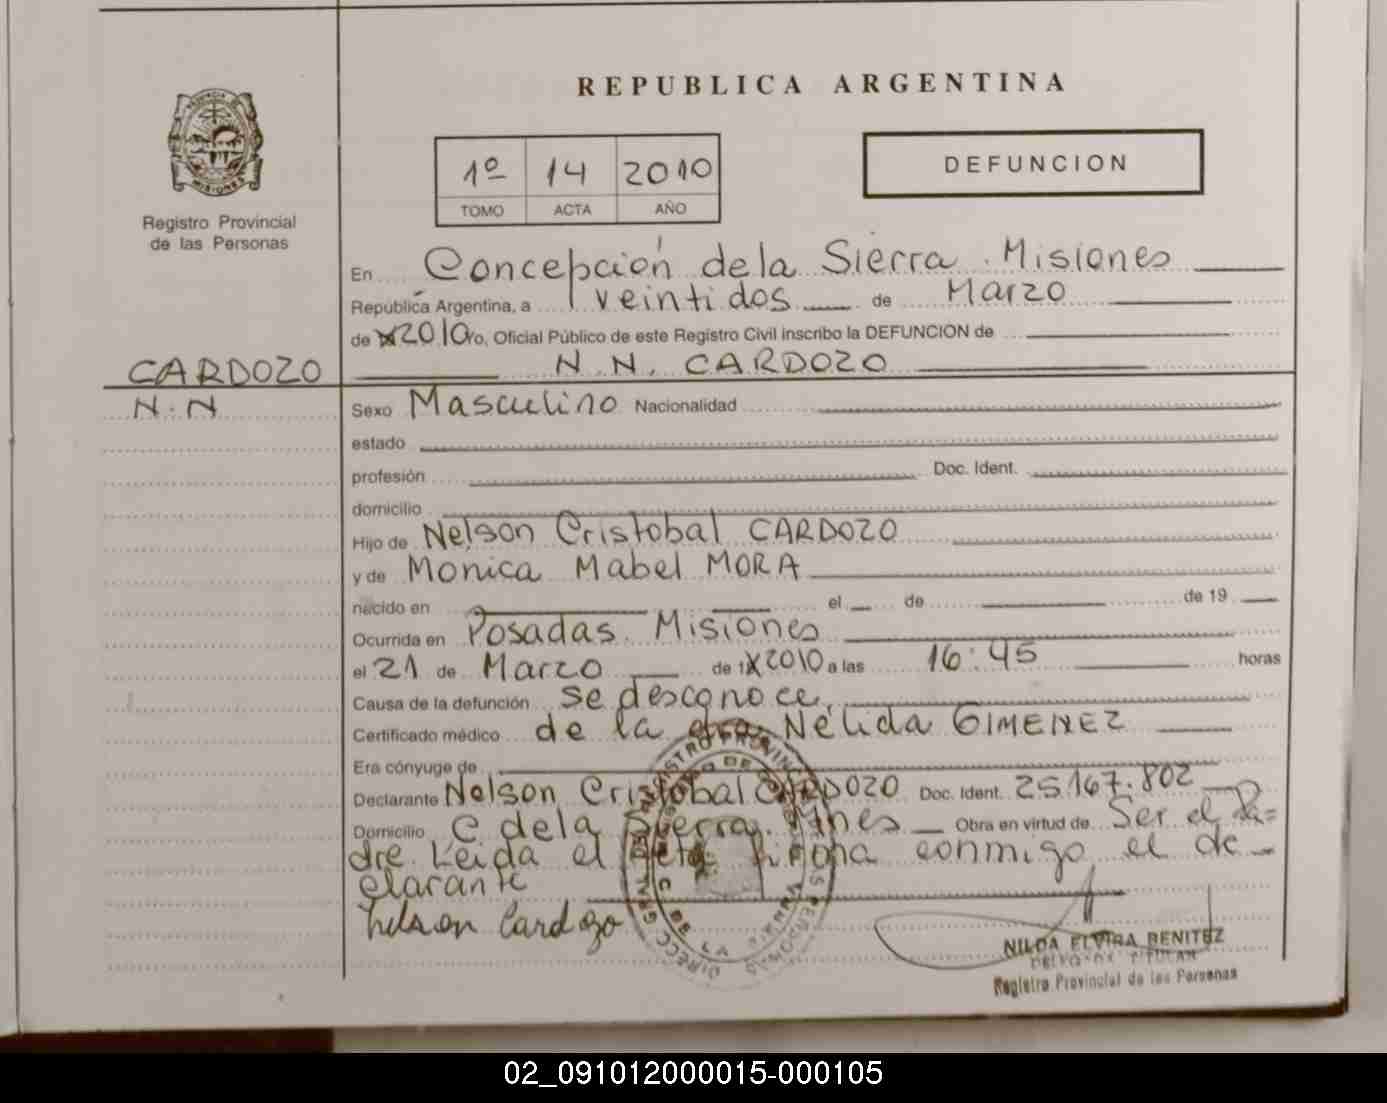 REPUBLICA ARGENTINA
Registro Provincial
de las Personas
MISIONES
1º 14 2010
TOMO ACTA AÑO
DEFUNCION
En Concepción de la Sierra . Misiones
República Argentina, a veintidos de Marzo
de 2010 yo, Oficial Público de este Registro Civil inscribo la DEFUNCION de
CARDOZO
N. N
N. N. CARDOZO
Sexo Masculino Nacionalidad
estado
profesión Doc. Ident.
domicilio
Hijo de Nelson Cristobal CARDOZO
y de Monica Mabel MORA
nacido en el de de 19
Ocurrida en Posadas. Misiones
el 21 de Marzo de 2010 a las 16:45 horas
Causa de la defunción se desconoce.
Certificado médico de la dra Nélida GIMENEZ
Era cónyuge de
Declarante Nelson Cristobal CARDOZO Doc. Ident. 25.167.802
Domicilio C de la Sierra. Mnes Obra en virtud de Ser el Pa=
dre Leida el Acta firma conmigo el de
clarante
Nelson Cardozo
NILDA ELVIRA BENITEZ
DELEGADA TITULAR
Registro Provincial de las Personas
02_091012000015-000105